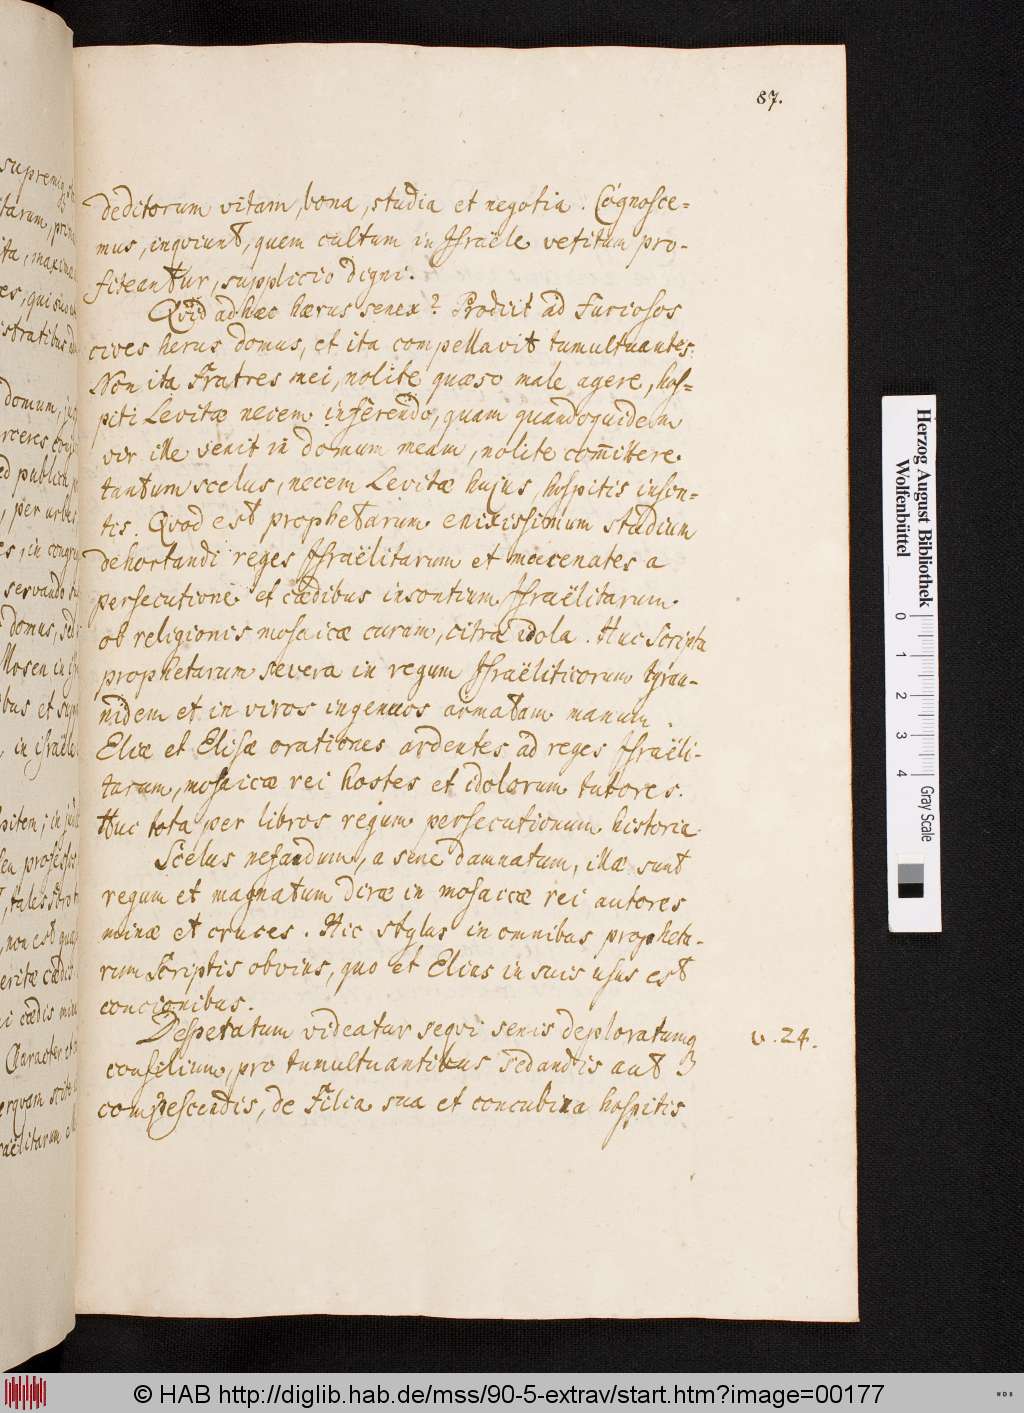 87.
deditorum vitam, bona, studia et negotia. Cognosce-
mus, inqviunt, quem cultum in Israële vetitum pro-
fiteantur, supplicio digni.
Qvid ad hæc hærus senex? Prodiit ad furiosos
cives herus domus, et ita compellavit tumultuantes:
Non ita Fratres mei, nolite quæso male agere, hos-
piti Levitæ necem inferendo, quam quandoquidem
vir ille venit in domum meam, nolite com̄ittere
tantum scelus, necem Levitæ hujus, hospitis inson-
tis. Qvod est prophetarum enixissimum studium
dehortandi reges Israëlitarum et mæcenates a
persecutione et cædibus insontium Israëlitarum
ob religionis mosaicæ curam, citra idola. Huc Scripta
prophetarum severa in regum Israëliticorum tyran-
nidem et in viros ingenuos armatam manum.
Eliæ et Elisæ orationes ardentes ad reges Israëli-
tarum, mosaicæ rei hostes et idolorum tutores.
Huc tota per libros regum persecutionum historia
Scelus nefandum, a sene damnatum, illæ sunt
regum et magnatum diræ in mosaicæ rei autores
minæ et cruces. Hic stylus in omnibus propheta-
rum Scriptis obvius, quo et Elias in suis usus est
concionibus.
Desperatum videatur seqvi senis deploratumq3
consilium, pro tumultuantibus sedandis aut
compescendis, de Filia sua et concubina hospitis
v. 24.
supremi
domum,
ed publica
per urbes
servando
domus, sed
Mosen in
in israële
non est
Character et
Herzog August Bibliothek
Wolfenbüttel
0
1
2
3
4
Gray Scale
© HAB http://diglib.hab.de/mss/90-5-extrav/start.htm?image=00177